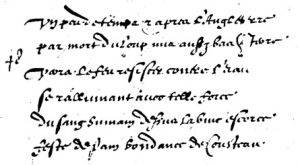 Un peu de temps apres l'Angleterre
par mort du loup mise aussy bas q terre
Verra le feu resister contre l'eau
se rallumant avec telle force
du sang humain dessus escorce
de pain bondance de Cousteau